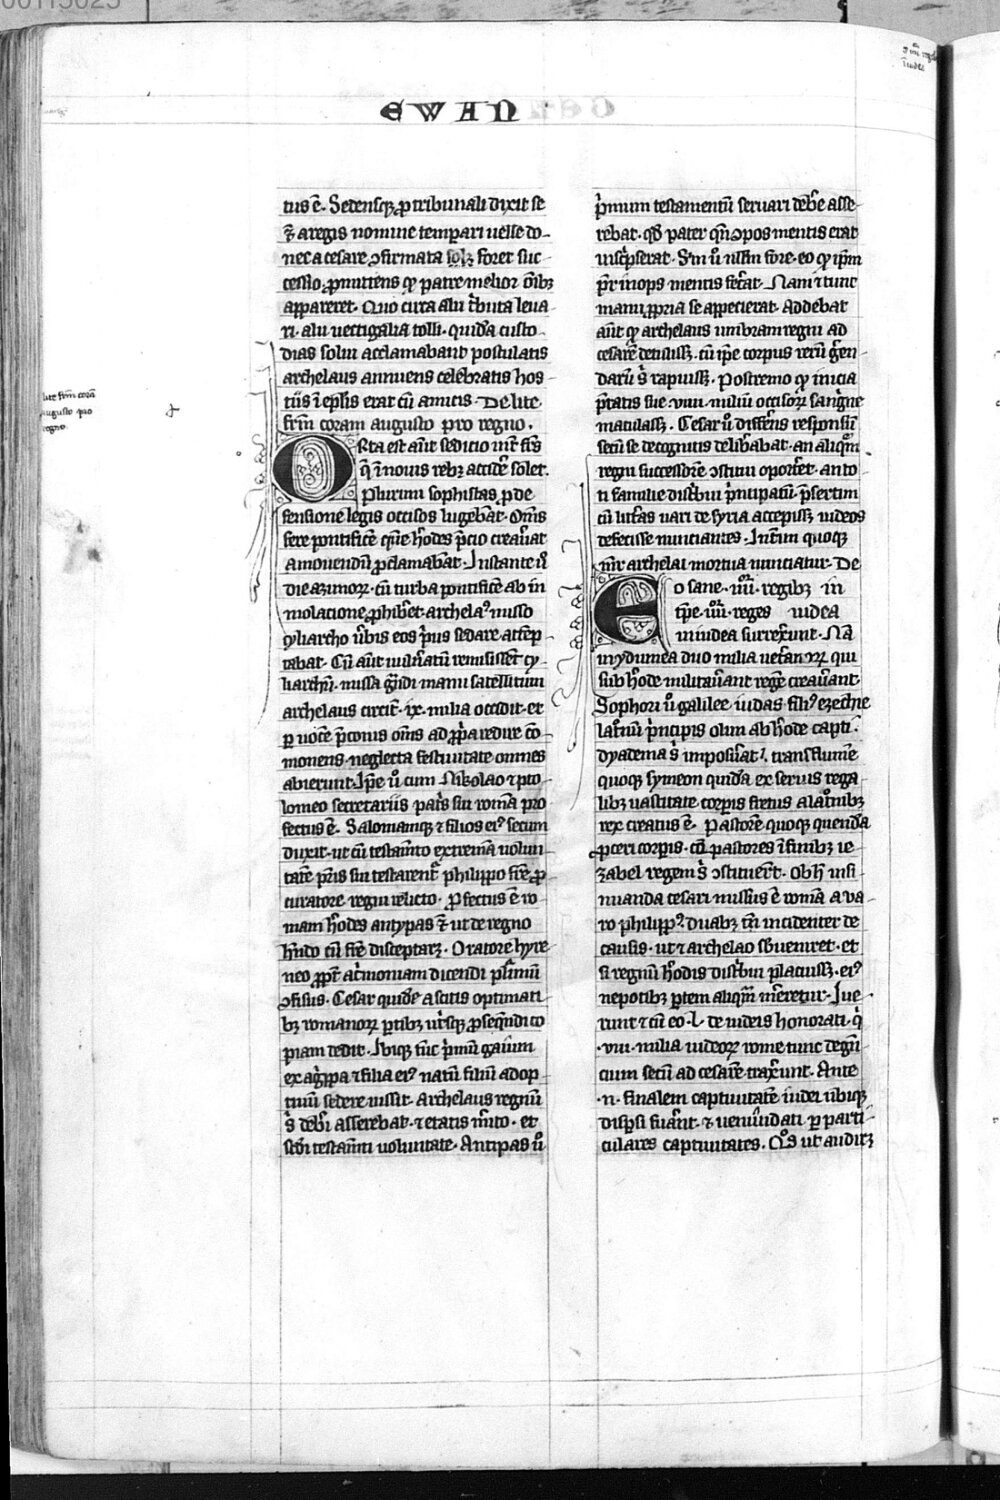 00115025
EWAN
tus ē. Sedensq; ꝓ tribunali dixit se
⁊̄ a regis nomine temperari uelle do-
nec a cesare ɔfirmata sibi foret suc-
cessio. ꝓmittens qꝫ patre melior oībꝫ
appareret. Quo circa alii t̄buta leua-
ri. alii uectigalia tolli. quidā custo-
dias solui acclamabant postulatis
archelaus annuens celebratis hos-
tiis ī eplis erat cū amicis. De lite
fr̄m coram augusto pro regno.
Orta est aut̄ sedicio int̄ eos
q̄ ī nouis rebꝫ accidē solet.
Plurimi sophistas ꝓ de
fensione legis occisos lugebāt. Om̄s
fere pontificē quē h̓odes p̄cio creau̓at
amouendū ꝓclamabāt. Instante u̓
die azimoꝝ. cū turba pontificē ab in
molacione ꝓhib̓et. archela⁹ misso
cyliarcho u̓bis eos p̓us sedare attēp
tabat. Cū aut̄ uuln̓atū remisissēt cy-
liarchū. missa g̓ndi manu satellitum
archelaus circit̓. ix. milia occidit. et
ꝑ uocē p̄conis om̄s ad ꝓp̓a redire cō
monens. neglecta festiuitate omnes
abierunt. Ip̄e u̓ cum Nikolao ⁊ pto
lomeo secretariis pat̓s sui romā pro
fectus ē. Salomamqꝫ ⁊ filios ei⁹ secum
duxit. ut cū testam̄to extremā uolun
tatē p̄ris sui testarent̄ philippo fr̄e ꝓ
curatore regni relicto. Profectus ē ro
mam h̓odes antypas ⁊̄ ut de regno
h̓ndo cū fr̄e disceptaꝫ. Oratorē hyre
neo ꝓpt̄ ac̓moniam dicendi pl̓imū
ɔfisus. Cesar quidē ascitis optimati
bꝫ romanoꝝ ꝑtibꝫ ut̓sqꝫ ꝓseq̄ndi co
piam dedit. Ibiqꝫ tūc p̓mū gaium
ex ag̓ppa ⁊ filia ei⁹ natū filiū adop
tiuū sedere iussit. Archelaus regnū
s̓ deb̓i asserebat. ⁊ etatis m̓ito. et
sed̓i testam̄ti uoluntate. Antipas u̓
p̓mum testamentū seruari deb̓e asse
rebat. qd̓ pater q̄n ɔpos mentis erat
ɔsc̓pserat. Sn̄ u̓ irritū fore. eo qꝫ ip̄m
p̓r inops mentis fec̓at. Nam ⁊ tunc
manu ꝓpria se appecierat. Addebat
aūt qꝫ archelaus umbram regni ad
cesarē detulissꝫ. cū ip̄e corpus rerū g̓en
darū s̓ rapuissꝫ. Postremo qꝫ inicia
p̄tatis sue. viii. miliū occisoꝝ sang̓ne
maculassꝫ. Cesar u̓ diff̓ens responsū
secū se de cognitis delib̓abat. an aliq̄m
regni successorē ɔstitui oport̓et. an to
ti familie dist̓bui p̓ncipatū. p̄sertim
cū lit̓as uari de syria accepissꝫ iudeos
defecisse nunciantes. Int̓im quoqꝫ
m̄r archelai mortua nunciatur. De
Eo sane .iiii. regibꝫ in
tp̄e .iiii. reges iudea
in iudea surrex̓unt. Nā
in ydumea duo milia uet̓anoꝝ qui
sub h̓ode militau̓ant regē creau̓ant.
Sophori u̓ galilee iudas fili⁹ ezechie
lat̓nū p̓ncipis olim ab h̓ode capti.
dyadema s̓ imposu̓at. transflumē
quoqꝫ symeon quidā ex seruis rega
libꝫ uastitate corꝑis fretus a lat̓nibꝫ
rex creatus ē. Pastorē quoqꝫ quendā
ꝓceri corꝑis. cū pastores ī finibꝫ ie
zabel regem s̓ ɔstituer̄t. Ob h̓ insi
nuanda cesari missus ē romā a ua
ro philipp⁹. Duabꝫ tn̄ incidenter de
causis. ut ⁊ archelao sb̓ueniret. et
si regnū h̓odis dist̓bui placuissꝫ. ei⁹
nepotibꝫ ꝑtem aliq̄m m̓eretur. Iue
runt ⁊ cū eo .l. de iudeis honorati. q̓
.viii. milia iudeoꝝ rome tunc degn̄
cium secū ad cesarē trax̓unt. Ante
.n. finalem captiuitatē iudei ubiqꝫ
disꝑsi fu̓ant. ⁊ uenu̓ndati ꝑ parti
culares captiuitates. Qd̓ ut auditꝫ